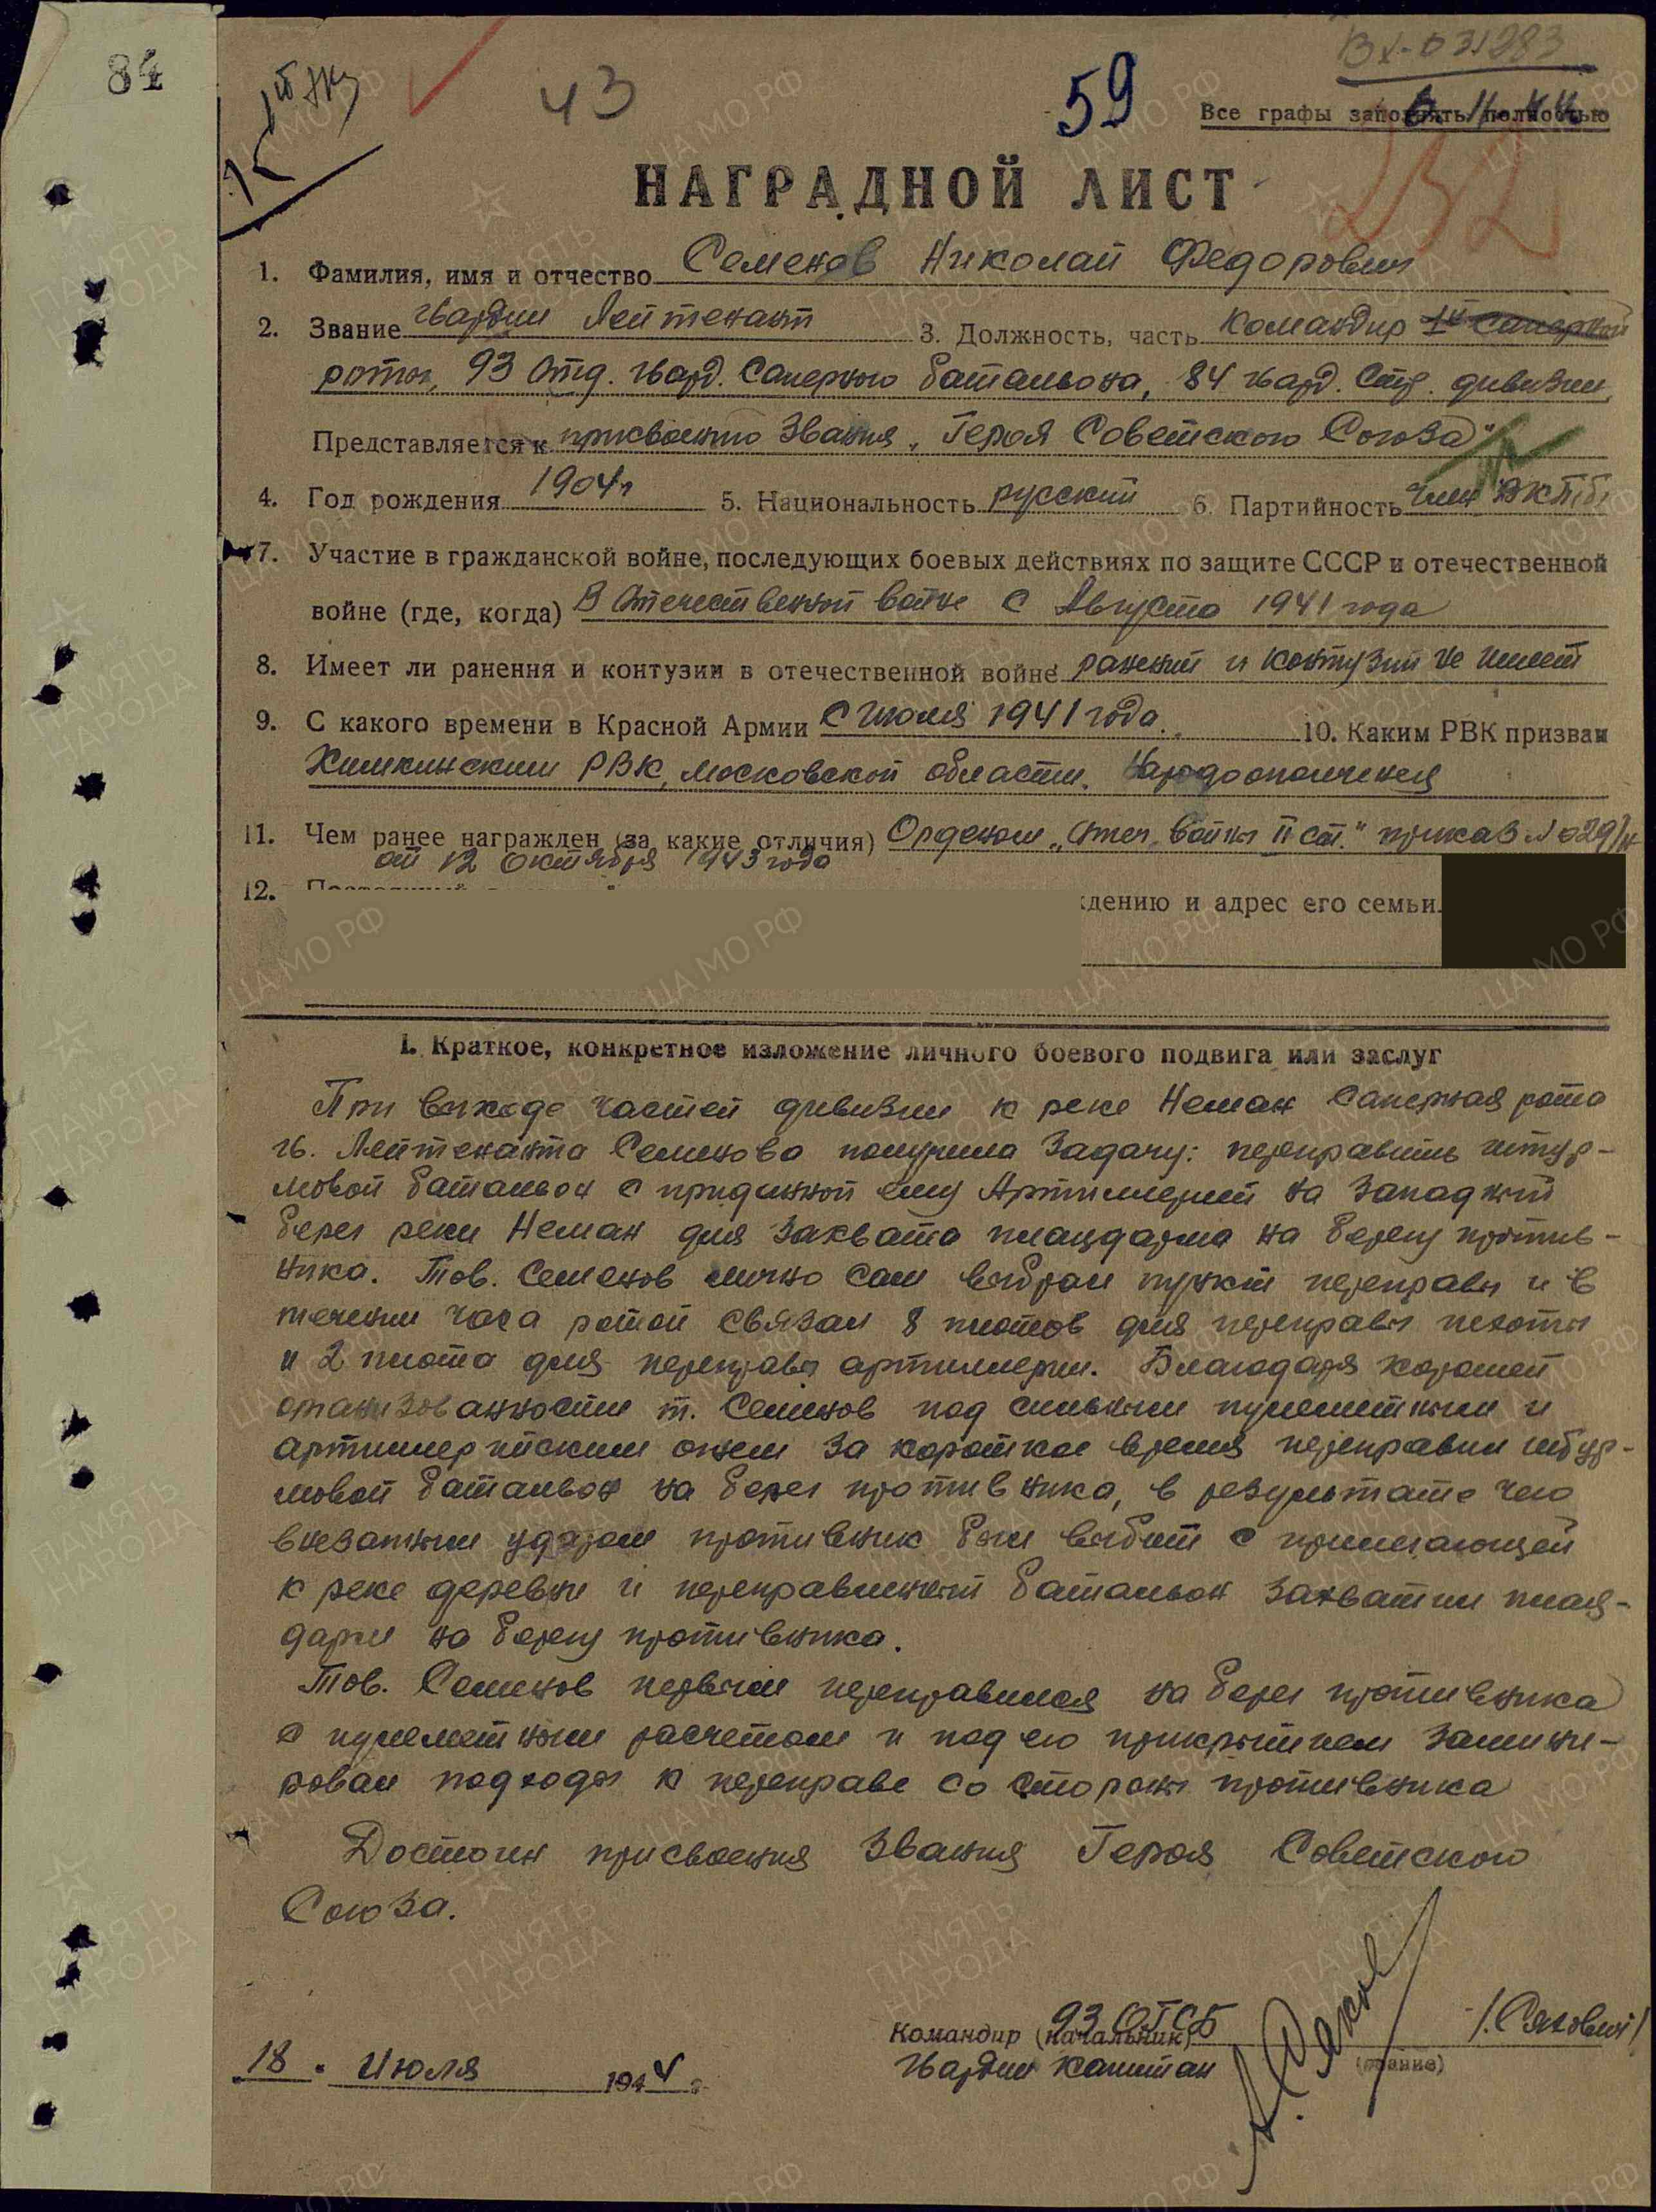 84
43
59
Вх-031283
Все графы заполнять полностью
НАГРАДНОЙ ЛИСТ
252
1. Фамилия, имя и отчество Семенов Николай Федорович
2. Звание гвардии Лейтенант 3. Должность, часть Командир 1й саперной
роты, 93 Отд. гвард. Саперного батальона, 84 гвард. Стр. дивизии,
Представляется к присвоению звания „Героя Советского Союза"
4. Год рождения 1904г 5. Национальность русский 6. Партийность член ВКП(б)
7. Участие в гражданской войне, последующих боевых действиях по защите СССР и отечественной
войне (где, когда) В Отечественной войне с Августа 1941 года
8. Имеет ли ранения и контузии в отечественной войне ранений и контузий не имеет
9. С какого времени в Красной Армии С июля 1941 года. 10. Каким РВК призван
Химкинским РВК, Московской области. Народоополчения
11. Чем ранее награжден (за какие отличия) Орденом „Отеч. войны II ст." приказ №029/н
от 12 Октября 1943 года
12. ждению и адрес его семьи.
I. Краткое, конкретное изложение личного боевого подвига или заслуг
При выходе частей дивизии к реке Неман Саперная рота
гв. Лейтенанта Семенова получила задачу: переправить штур-
мовой батальон с приданной ему Артиллерией на западный
берег реки Неман для захвата плацдарма на берегу против-
ника. Тов. Семенов лично сам выбрал пункт переправы и в
течении часа ротой связал 8 плотов для переправы пехоты
и 2 плота для переправы артиллерии. Благодаря хорошей
организованности т. Семенов под сильным пулеметным и
артиллерийским огнем за короткое время переправил штур-
мовой батальон на берег противника, в результате чего
внезапным ударом противник был выбит с прилегающей
к реке деревни и переправленный батальон захватил плац-
дарм на берегу противника.
Тов. Семенов первым переправился на берег противника
с пулеметным расчетом и под его прикрытием замини-
ровал подходы к переправе со стороны противника
Достоин присвоения звания Героя Советского
Союза.
93 ОГСБ
Командир (начальник)
Гвардии капитан
(звание)
18 . Июля 1944 г.